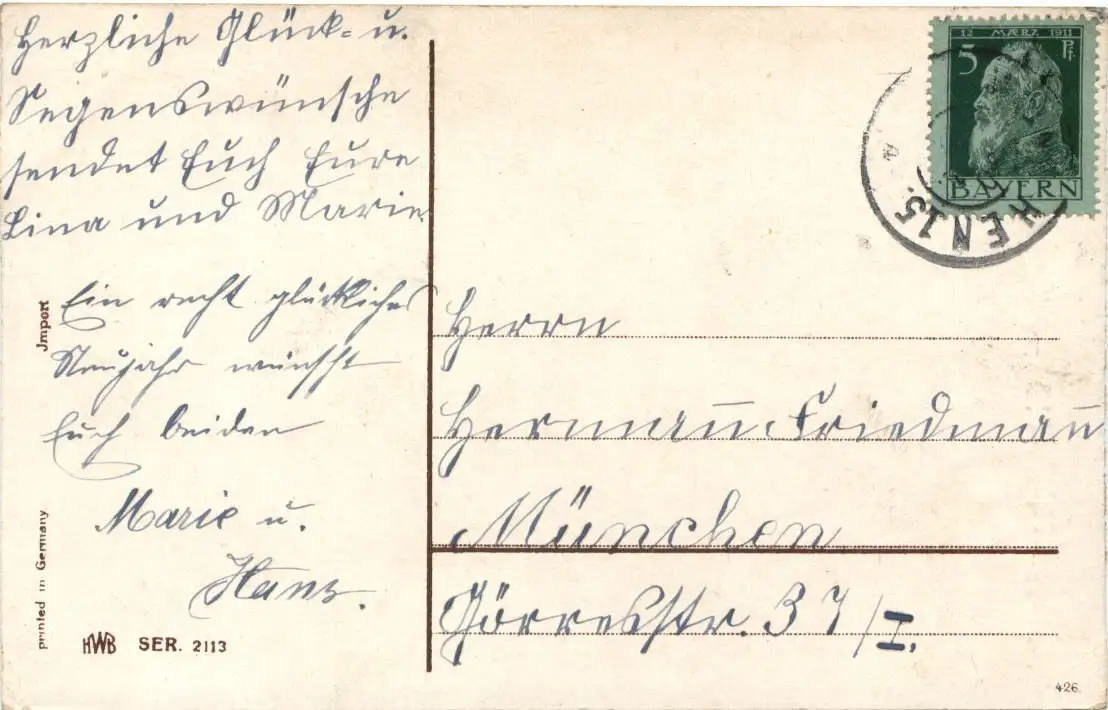 Herzliche Glück- u.
Segenswünsche
sendet Euch Eure
Lina und Marie.
Ein recht glückliches
Neujahr wünscht
Euch beiden
Marie u.
Hans.
Jmport
printed in Germany
HWB SER. 2113
12 MÆRZ 1911
5 Pf.
BAYERN
HEN 15.
Herrn
Hermann̄ Friedman̄
München
Görresstr. 37/I.
426